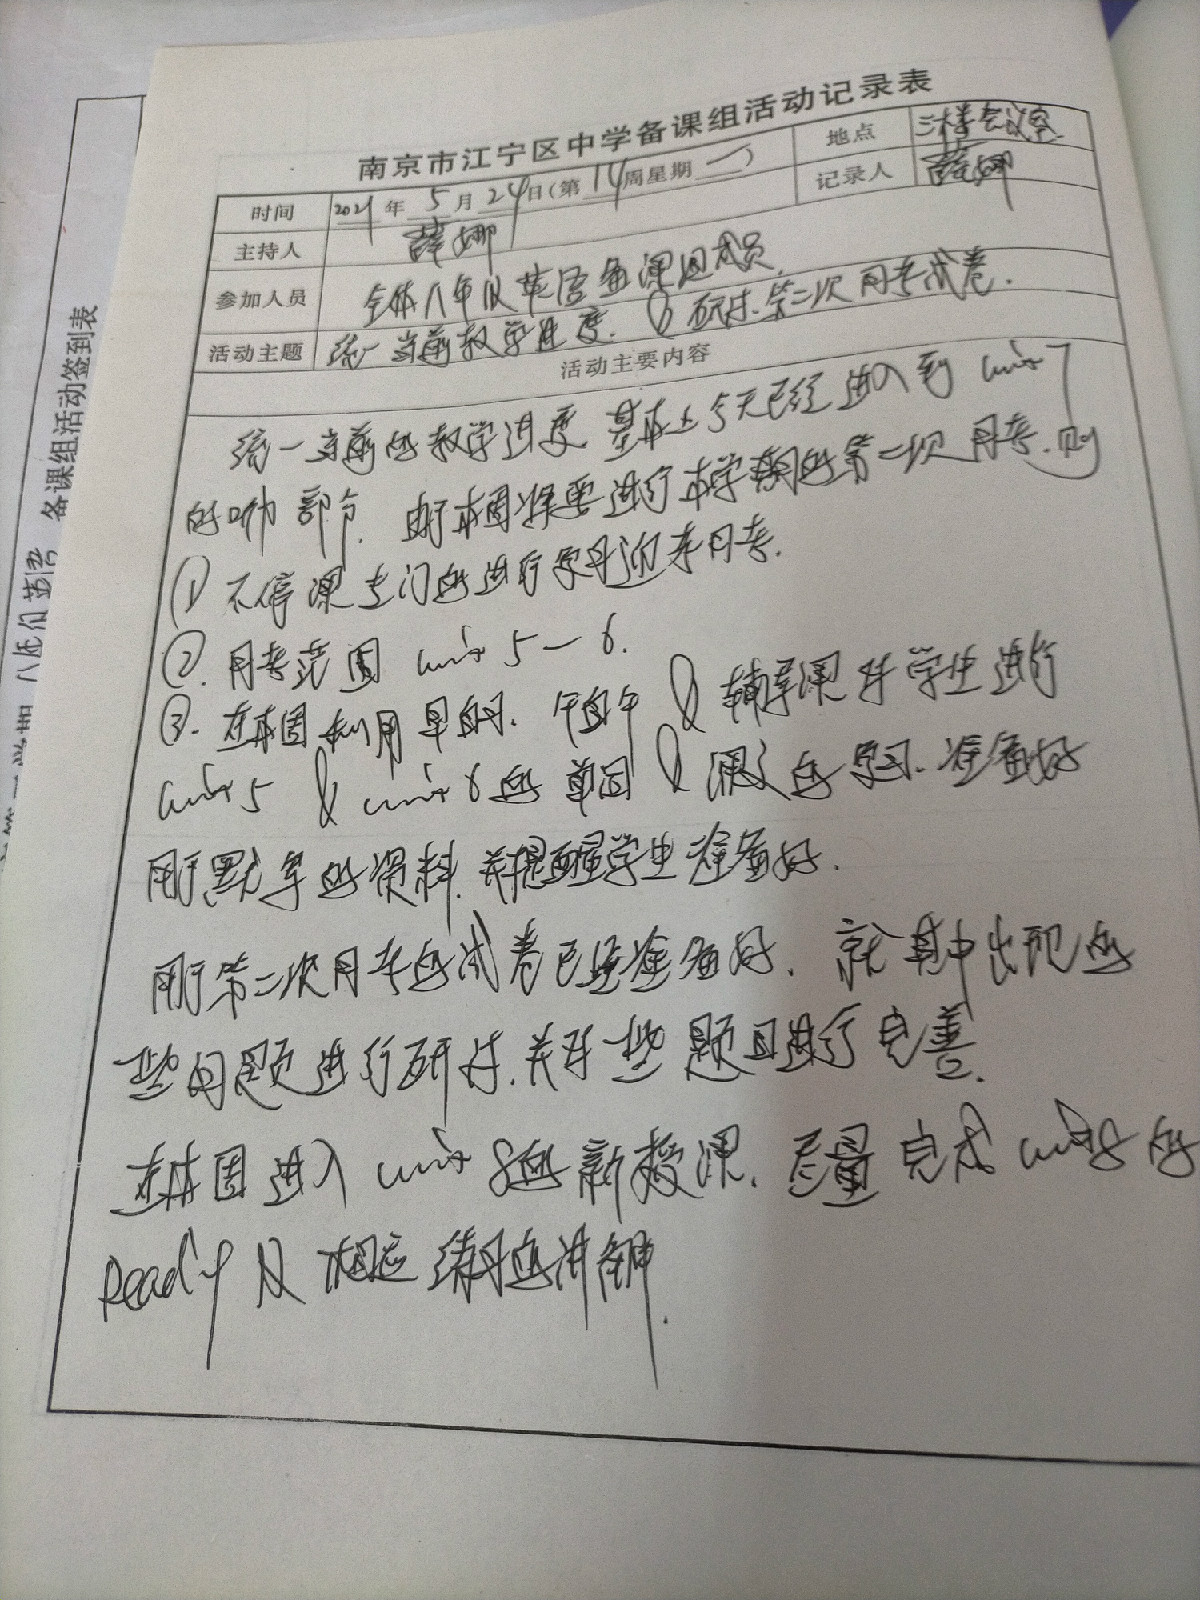 南京市江宁区中学备课组活动记录表
时间 2021年5月24日(第14周星期一)
地点 三楼会议室
主持人 薛娜
记录人 薛娜
参加人员 全体八年级英语备课组成员.
活动主题 统一当前教学进度. & 研讨第二次月考试卷.
活动主要内容
统一当前的教学进度 基本上今天已经进入到 unit 7
的 部分. 由于本周将要进行本学期的第二次月考. 则
① 不停课专门的进行复习迎来月考.
② 月考范围 unit 5-6.
③. 在本周利用早自习. 午自 & 辅导课对学生进行
unit 5 & unit 6 的单词 & 课文的复习. 准备好
用于默写的资料. 并提醒学生准备好.
用于第二次月考的试卷已经准备好. 就其中出现的
一些问题进行研讨. 并对一些题目进行完善.
在本周进入 unit 8的新授课. 尽量完成 unit 8 的
Reading 及相应练习的讲解.
八年级英语 备课组活动签到表